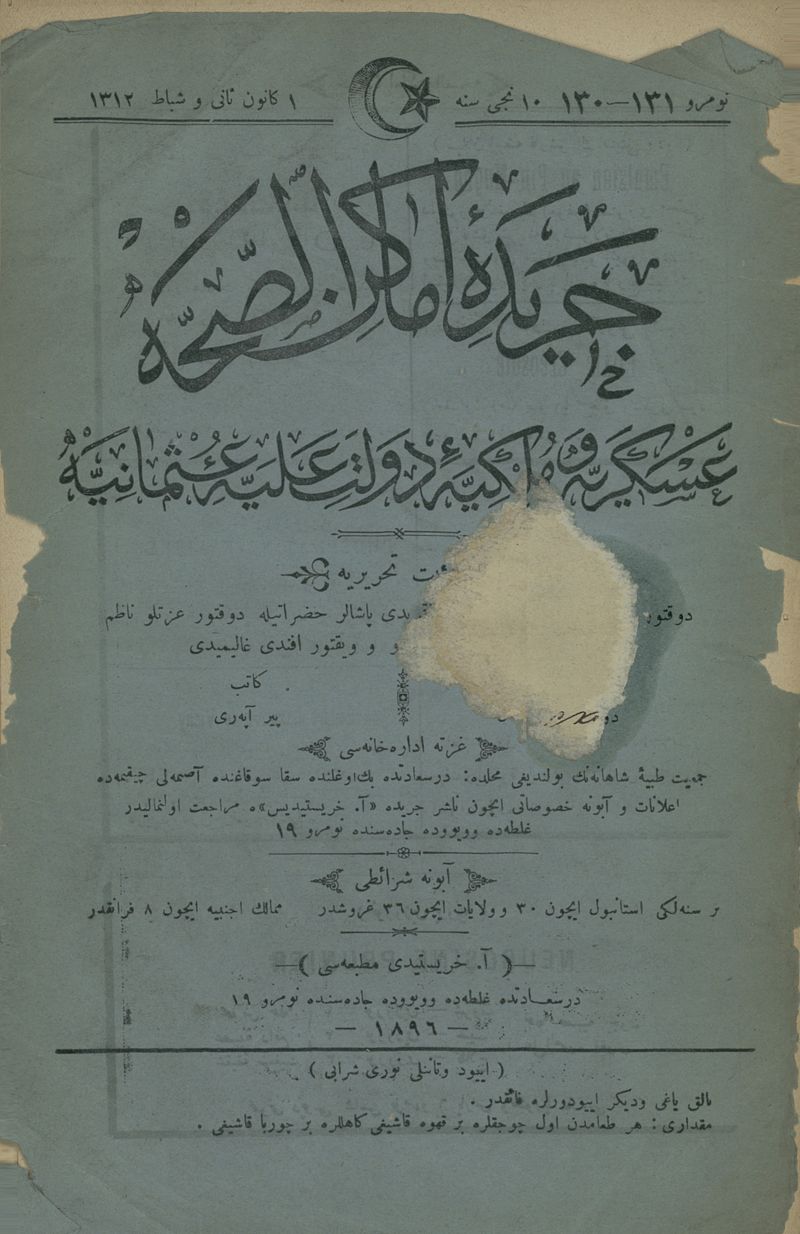 نومرو ١٣١—١٣٠ ١٠ نجی سنه
١ كانون ثانی و شباط ١٣١٢
جريدۀ اماكن الصحّه
عسكريه و ملكيۀ دولت عليۀ عثمانيه
تحريريه
دوقتور پاشالر حضراتيله دوقتور عزتلو ناظم
و ويقتور افندی غاليميدی
كاتب
پير آپه‌ری
غزته اداره‌خانه‌سی
جمعيت طبيۀ شاهانه‌نك بولنديغی محلده: درسعادتده بك‌اوغلنده سقا سوقاغنده آصمه‌لی چيقمه‌ده
اعلانات و آبونه خصوصاتی ايچون ناشر جريده «آ. خريستيديس»ه مراجعت اولنماليدر
غلطه‌ده وويووده جاده‌سنده نومرو ١٩
آبونه شرائطی
بر سنه‌لكی استانبول ايچون ٣٠ و ولايات ايچون ٣٦ غروشدر ممالك اجنبيه ايچون ٨ فرانقدر
—( آ. خريستيدی مطبعه‌سی )—
درسعادتده غلطه‌ده وويووده جاده‌سنده نومرو ١٩
— ١٨٩٦ —
( ايیود وتاننلی نوری شرابی )
بالق ياغی وديكر ايیودورلره فائقدر .
مقداری : هر طعامدن اول چوجقلره بر قهوه قاشيغی كاهللره بر چوربا قاشيغی .